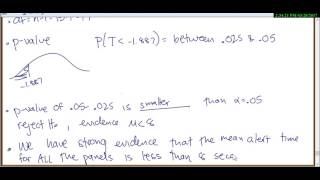 • df = n-1 = 15-1 = 14
• p-value P(T < -1.887) = between .025 & .05
-1.887
• p-value of .05-.025 is smaller than α=.05
reject H₀, evidence μ<8
• We have strong evidence that the mean alert time
for ALL the panels is less than 8 seconds